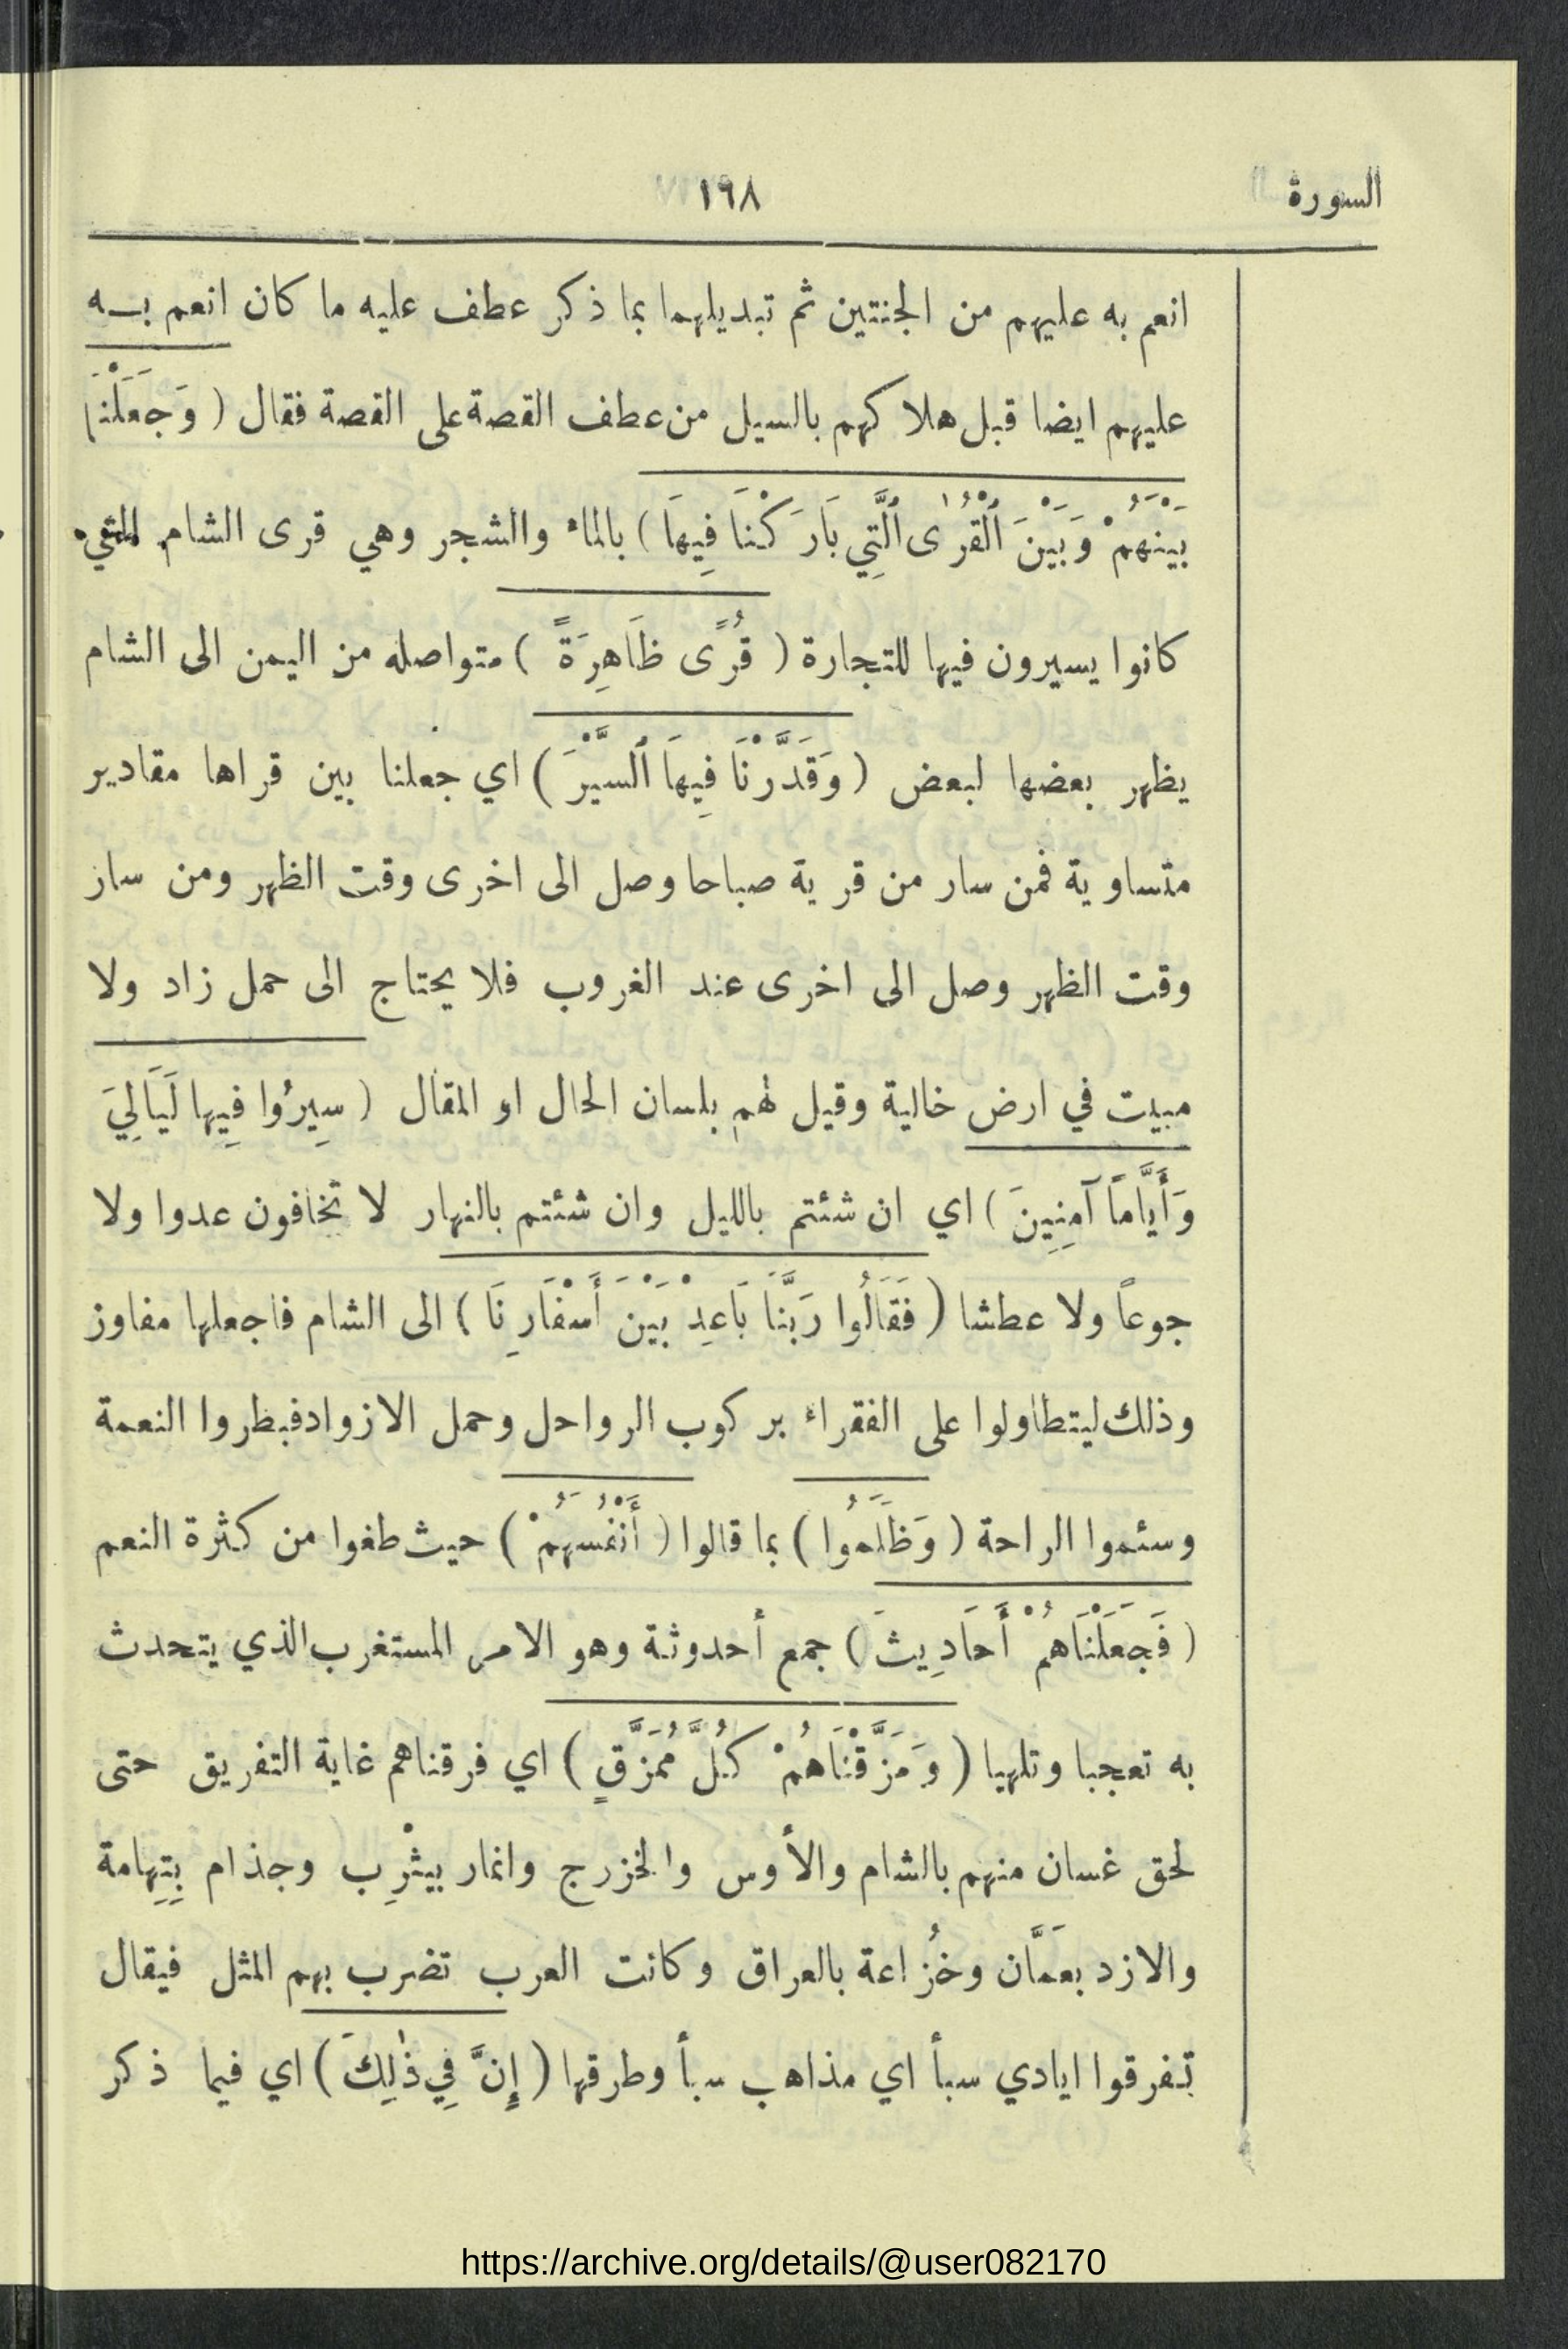 السورة ١٩٨
انعم به عليهم من الجنتين ثم تبديلهما بما ذكر عطف عليه ما كان انعم به
عليهم ايضا قبل هلاكهم بالسيل من عطف القصة على القصة فقال ( وَجَعَلْنَا
بَيْنَهُمْ وَبَيْنَ ٱلْقُرٰى ٱلَّتِي بَارَكْنَا فِيهَا ) بالماء والشجر وهي قرى الشام التي
كانوا يسيرون فيها للتجارة ( قُرًى ظَاهِرَةً ) متواصله من اليمن الى الشام
يظهر بعضها لبعض ( وَقَدَّرْنَا فِيهَا ٱلسَّيْرَ ) اي جعلنا بين قراها مقادير
متساوية فمن سار من قرية صباحا وصل الى اخرى وقت الظهر ومن سار
وقت الظهر وصل الى اخرى عند الغروب فلا يحتاج الى حمل زاد ولا
مبيت في ارض خالية وقيل لهم بلسان الحال او المقال ( سِيرُوا فِيهَا لَيَالِيَ
وَأَيَّامًا آمِنِينَ ) اي ان شئتم بالليل وان شئتم بالنهار لا تخافون عدوا ولا
جوعاً ولا عطشا ( فَقَالُوا رَبَّنَا بَاعِدْ بَيْنَ أَسْفَارِنَا ) الى الشام فاجعلها مفاوز
وذلك ليتطاولوا على الفقراء بركوب الرواحل وحمل الازواد فبطروا النعمة
وسئموا الراحة ( وَظَلَمُوا ) بما قالوا ( أَنْفُسَهُمْ ) حيث طغوا من كثرة النعم
( فَجَعَلْنَاهُمْ أَحَادِيثَ ) جمع أحدوثة وهو الامر المستغرب الذي يتحدث
به تعجبا وتلهيا ( وَمَزَّقْنَاهُمْ كُلَّ مُمَزَّقٍ ) اي فرقناهم غاية التفريق حتى
لحق غسان منهم بالشام والأوس والخزرج وانمار بيثْرِب وجذام بِتِهامة
والازد بعَمَّان وخُزاعة بالعراق وكانت العرب تضرب بهم المثل فيقال
تفرقوا ايادي سبأ اي مذاهب سبأ وطرقها ( إِنَّ فِي ذٰلِكَ ) اي فيما ذكر
https://archive.org/details/@user082170